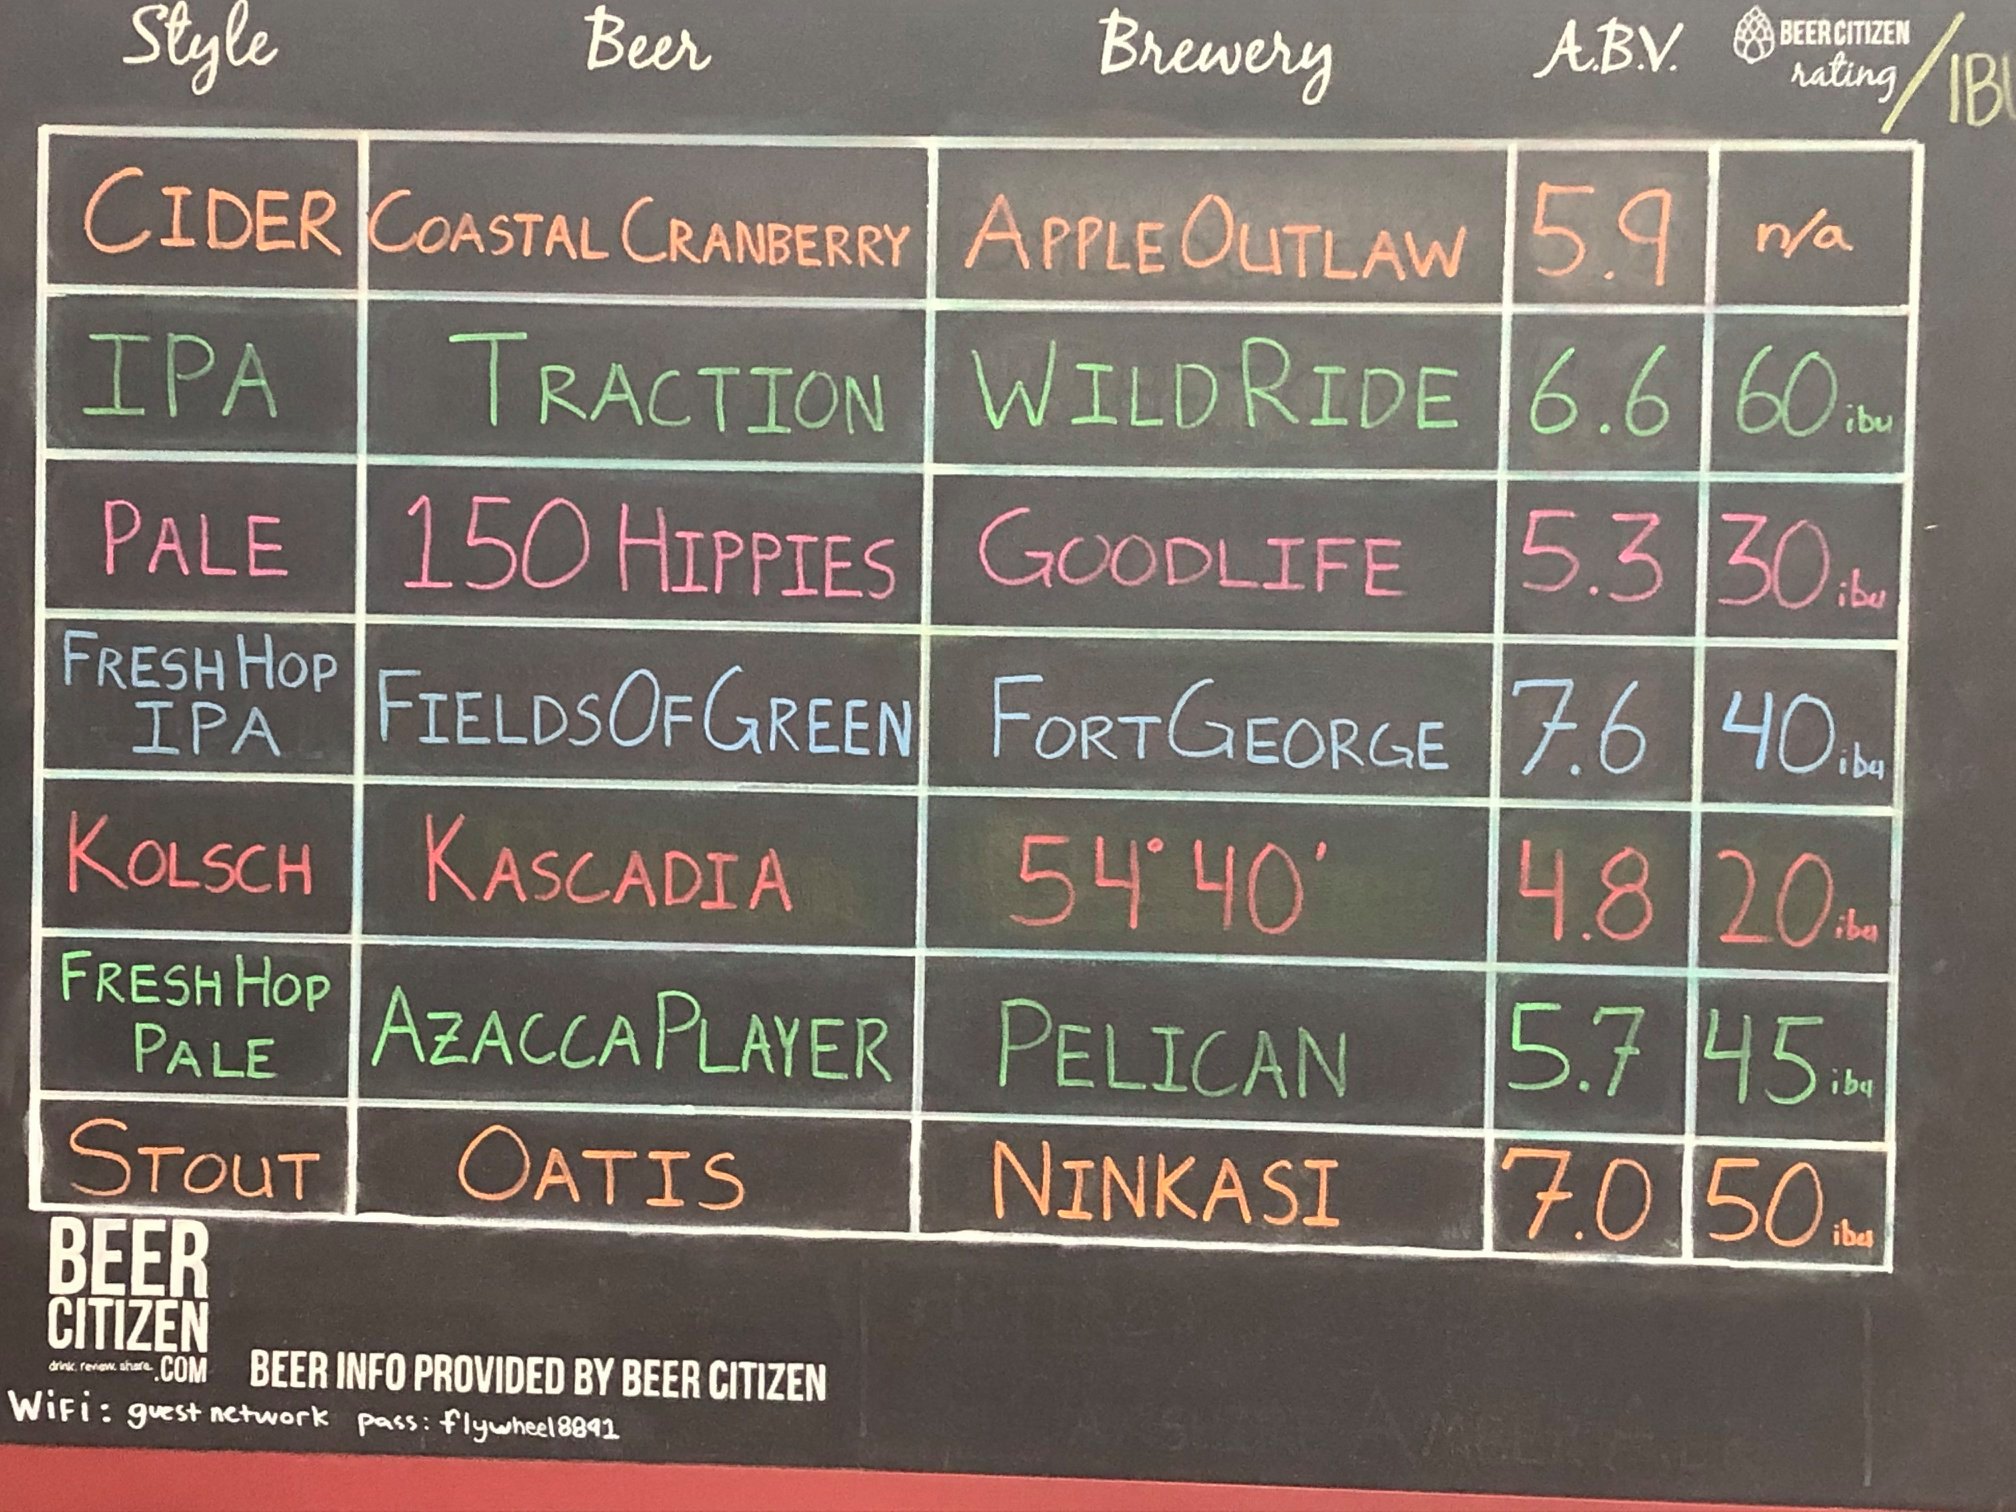 Style Beer Brewery A.B.V. BEER CITIZEN rating / IBU
CIDER COASTAL CRANBERRY APPLE OUTLAW 5.9 n/a
IPA TRACTION WILD RIDE 6.6 60 ibu
PALE 150 HIPPIES GOODLIFE 5.3 30 ibu
FRESH HOP
IPA FIELDS OF GREEN FORT GEORGE 7.6 40 ibu
KOLSCH KASCADIA 54° 40' 4.8 20 ibu
FRESH HOP
PALE AZACCA PLAYER PELICAN 5.7 45 ibu
STOUT OATIS NINKASI 7.0 50 ibu
BEER
CITIZEN
drink. review. share. .COM
BEER INFO PROVIDED BY BEER CITIZEN
WiFi: guest network pass: flywheel8891